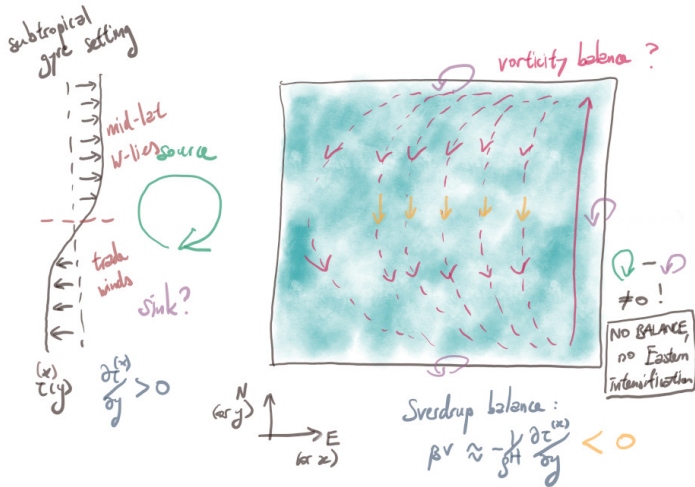 subtropical
gyre setting
mid-lat
W-lies
source
trade
winds
sink?
τ^(x)(y)
∂τ^(x)/∂y > 0
N
(or y)
E
(or x)
vorticity balance ?
−
≠0 !
NO BALANCE,
no Eastern
intensification
Sverdrup balance :
βv ≈ -1/ρH ∂τ^(x)/∂y < 0